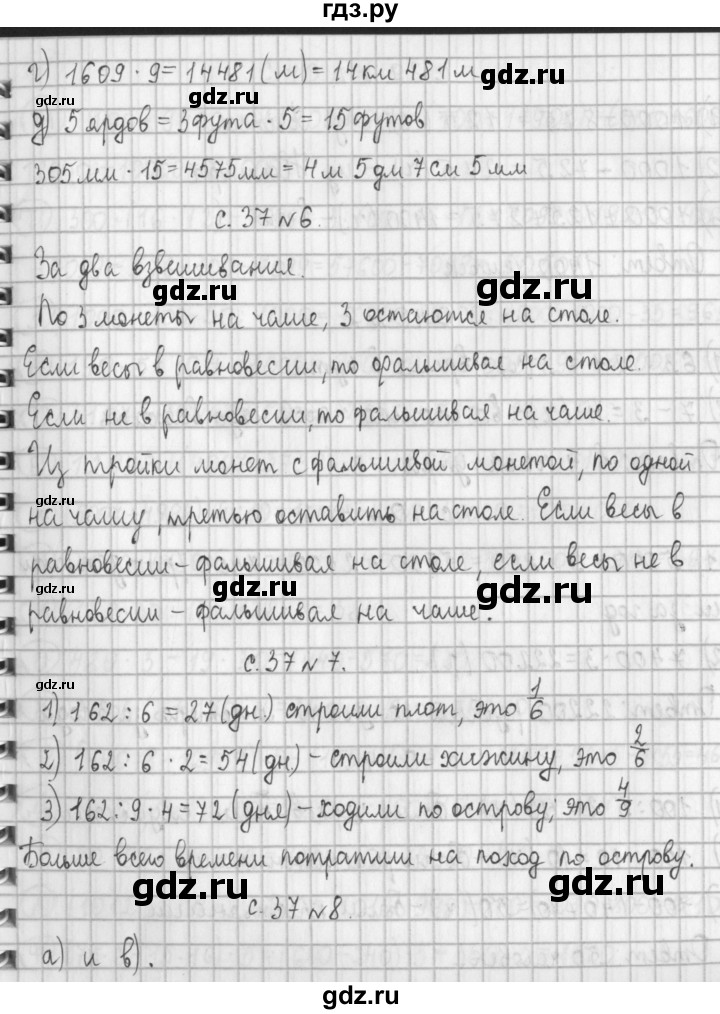 гдз.ру
г) 1609 · 9 = 14481 (м) = 14 км 481 м
gdz.ru gdz.ru gdz.ru
д) 5 ярдов = 3 фута · 5 = 15 футов
305 мм · 15 = 4575 мм = 4 м 5 дм 7 см 5 мм
с. 37 № 6.
За два взвешивания.
gdz.ru gdz.ru gdz.ru
По 3 монеты на чаше, 3 остаются на столе.
Если весы в равновесии, то фальшивая на столе.
gdz.ru
Если не в равновесии, то фальшивая на чаше.
Из тройки монет с фальшивой монетой, по одной
gdz.ru
на чашу, третью оставить на столе. Если весы в
равновесии – фальшивая на столе, если весы не в
gdz.ru gdz.ru gdz.ru
равновесии – фальшивая на чаше.
с. 37 № 7.
gdz.ru
1) 162 : 6 = 27 (дн.) строили плот, это 1/6
2) 162 : 6 · 2 = 54 (дн) – строили хижину, это 2/6
3) 162 : 9 · 4 = 72 (дня) – ходили по острову, это 4/9
gdz.ru
Больше всего времени потратили на поход по острову.
gdz.ru gdz.ru
с. 37 № 8.
gdz.ru
а) и в).
gdz.ru